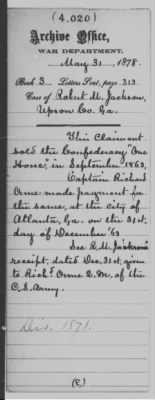 (4.020)
Archive Office,
WAR DEPARTMENT.
May 31 1878.
Book 3 Letters Sent, page 313
Case of Robert M. Jackson,
Upson Co. Ga.
This Claimant
sold the Confederacy "One
Horse", in September 1863,
Captain Richard
Orme made payment for
the same, at the city of
Atlanta, Ga. on the 31st
day of December '63
See R. M. Jackson's
receipt, dated Dec. 31st, given
to Richd. Orme Q.M. of the
C.S. Army.
Dis. 1871.